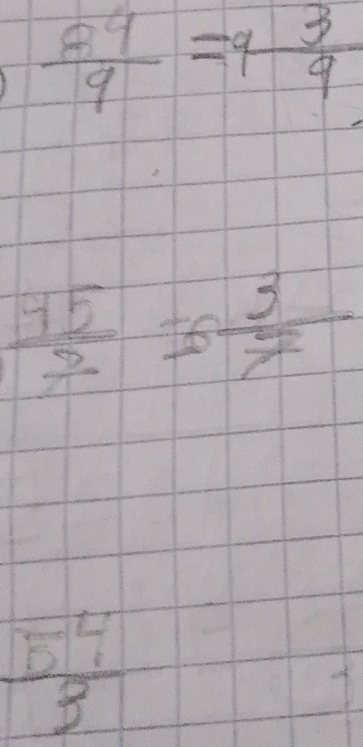 84/9 = 9 3/9
45/7 = 6 3/7
54/3